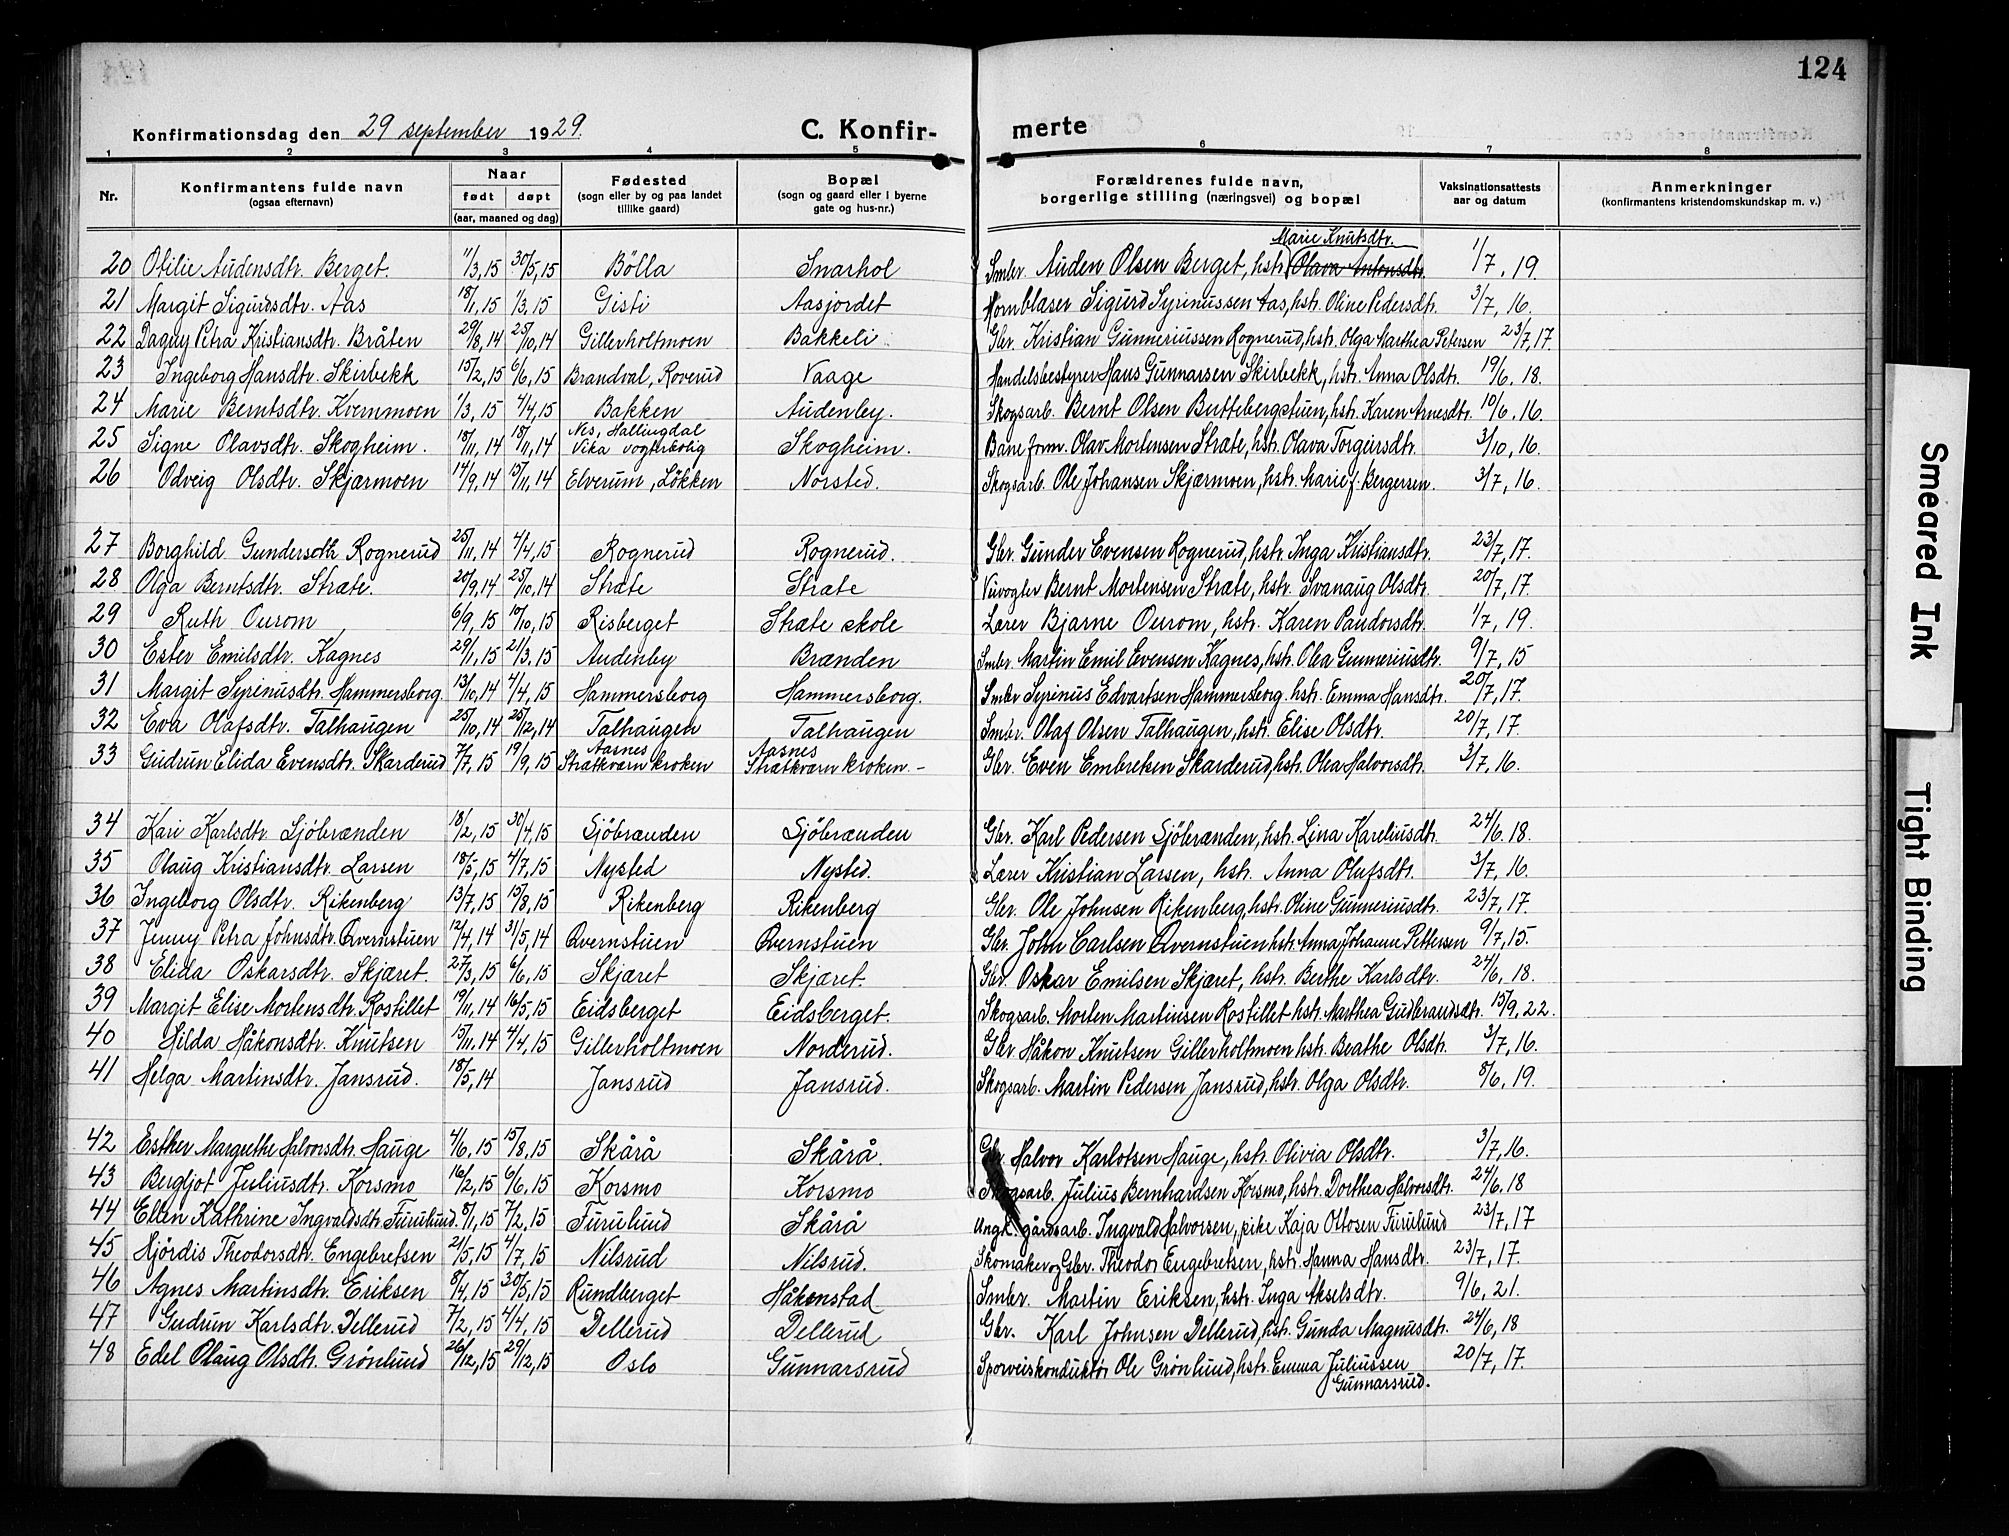 124
Konfirmationsdag den 29 september 1929. C. Konfir- merte
1 2 3 4 5 6 7 8
Nr. Konfirmantens fulde navn (ogsaa efternavn) Naar født døpt (aar, maaned og dag) Fødested (sogn eller by og paa landet tillike gaard) Bopæl (sogn og gaard eller i byerne gate og hus-nr.) Forældrenes fulde navn, borgerlige stilling (næringsvei) og bopæl Vaksinationsattests aar og datum Anmerkninger (konfirmantens kristendomskundskap m. v.)
Marie Knutsdtr.
20 Otilie Audensdtr. Berget. 11/3, 15 30/5, 15 Bölla Snarhol Smbr. Auden Olsen Berget, hstr. Olava Antonsdtr. 1/7, 19.
21 Margit Sigurdsdtr. Aas 18/1, 15 1/3, 15 Gisti Aasjordet Hornblaser Sigurd Syrinussen Aas, hstr. Oline Pedersdtr. 3/7, 16.
22 Dagny Petra Kristiansdtr. Bråten 29/8, 14 25/10, 14 Gillerholtmoen Bakkeli Gbr. Kristian Gunneriussen Rognerud, hstr. Olga Marthea Petersen 23/7, 17.
23 Ingeborg Hansdtr. Skirbekk 15/2, 15 6/6, 15 Brandval, Roverud Vaage Handelsbestyrer Hans Gunnarsen Skirbekk, hstr. Anna Olsdtr. 19/6, 18.
24 Marie Berntsdtr. Kvernmoen 1/3, 15 4/4, 15 Bakken Audenby. Skogsarb. Bernt Olsen Buttebergstuen, hstr. Karen Arnesdtr. 10/6, 16.
25 Signe Olavsdtr. Skogheim. 18/11, 14 18/11, 14 Nes, Hallingdal Vika vogterbolig Skogheim. Bane form. Olav Mortensen Stræte, hstr. Olava Torgeirsdtr. 3/10, 16.
26 Odveig Olsdtr. Skjærmoen 14/9, 14 15/11, 14 Elverum, Lökken Norsted. Skogsarb. Ole Johansen Skjærmoen, hstr. Marie f. Bergersen. 3/7, 16.
27 Borghild Gundersdtr. Rognerud 25/11, 14 4/4, 15 Rognerud Rognerud. Gbr. Gunder Evensen Rognerud, hstr. Inga Kristiansdtr. 23/7, 17.
28 Olga Berntsdtr. Stræte. 20/9, 14 25/10, 14 Stræte Stræte Bernt Mortensen Stræte, hstr. Svanaug Olsdtr. 20/7, 17.
29 Ruth Ourom 6/9, 15 10/10, 15 Risberget Stræte skole Lærer Bjarne Ourom, hstr. Karen Paudorsdtr. 1/7, 19.
30 Ester Emilsdtr. Kagnes 29/1, 15 21/3, 15 Audenby Brænden Smbr. Martin Emil Evensen Kagnes, hstr. Olea Gunneriusdtr. 9/7, 15
31 Margit Syrinusdtr. Hammersborg 13/10, 14 4/4, 15 Hammersborg Hammersborg. Smbr Syrinus Edvartsen Hammersborg. hstr. Emma Hansdtr. 20/7, 17.
32 Eva Olafsdtr. Talhaugen 25/10, 14 25/12, 14 Talhaugen Talhaugen Smbr. Olaf Olsen Talhaugen, hstr. Elise Olsdtr. 20/7, 17.
33 Gudrun Elida Evensdtr. Skarderud 7/7, 15 19/9, 15 Aarnes Strætkværn kroken Aasnes Strætkværn kroken. - Gbr. Even Embretsen Skarderud, hstr. Olea Halvorsdtr. 3/7, 16.
34 Kari Karlsdtr. Sjöbrænden 18/2, 15 30/4, 15 Sjöbrænden Sjöbrænden Gbr. Karl Pedersen Sjöbrænden, hstr. Lina Kareliusdtr. 24/6, 18.
35 Olaug Kristiansdtr. Larsen 18/5, 15 4/7, 15 Nysted Nysted. Lærer Kristian Larsen, hstr. Anna Olufsdtr. 3/7, 16.
36 Ingeborg Olsdtr. Rikenberg 13/7, 15 15/8, 15 Rikenberg Rikenberg Gbr. Ole Johnsen Rikenberg, hstr. Oline Gunneriusdtr. 23/7, 17.
37 Jenny Petra Johnsdtr. Qvernstuen 12/4, 14 31/5, 14 Qvernstuen Qvernstuen Gbr. John Carlsen Qvernstuen hstr. Anna Johanne Pettersen 9/7, 15.
38 Elida Oskarsdtr. Skjæret. 27/3, 15 6/6, 15 Skjæret Skjæret. Gbr. Oskar Emilsen Skjæret, hstr. Berthe Karlsdtr. 24/6, 18.
39 Margit Elise Mortensdtr. Rostillet 19/11, 14 16/5, 15 Eidsberget Eidsberget. Skogsarb. Morten Martinsen Rostillet hstr. Marthea Gudbrandsdtr. 15/9, 22.
40 Hilda Håkonsdtr. Knutsen 15/11, 14 4/4, 15 Gillerholtmoen Norderud. Gbr Håkon Knutsen Gillerholtmoen hstr. Beathe Olsdtr. 3/7, 16.
41 Helga Martinsdtr. Jansrud. 18/5, 14 Jansrud Jansrud. Skogsarb. Martin Pedersen Jansrud, hstr. Olga Olsdtr. 8/6, 19.
42 Esther Margrethe Halvorsdtr. Hauge 4/6, 15 15/8, 15 Skårå Skårå. Gbr. Halvor Karlotsen Hauge, hstr. Olivia Olsdtr. 3/7, 16.
43 Bergljot Juliusdtr. Korsmo 16/2, 15 6/6, 15 Korsmo Korsmo Skogsarb. Julius Bernhardsen Korsmo, hstr. Dorthea Halvorsdtr. 24/6, 18
44 Ellen Kathrine Ingvaldsdtr. Furulund. 8/1, 15 7/2, 15 Furulund Skårå Ungk. gårdsarb. Ingvald Halvorsen, pike Kaja Ottosen Furulund 23/7, 17
45 Hjördis Theodorsdtr. Engebretsen 21/5, 15 4/7, 15 Nilsrud Nilsrud. Skomaker og Gbr. Theodor Engebretsen, hstr. Hanna Hansdtr. 23/7, 17.
46 Agnes Martinsdtr. Eriksen 8/4, 15 30/5, 15 Rundberget Håkonstad Smbr. Martin Eriksen, hstr. Inga Akselsdtr. 9/6, 21.
47 Gudrun Karlsdtr. Dellerud 7/2, 15 4/4, 15 Dellerud Dellerud Gbr. Karl Johnsen Dellerud, hstr. Gunda Magnusdtr. 24/6, 18
48 Edel Olaug Olsdtr. Grönlund 26/12, 15 29/12, 15 Oslo Gunnarsrud Sporveiskonduktör Ole Grönlund, hstr. Emma Juliussen Gunnarsrud. 20/7, 17.
Smeared Ink
Tight Binding